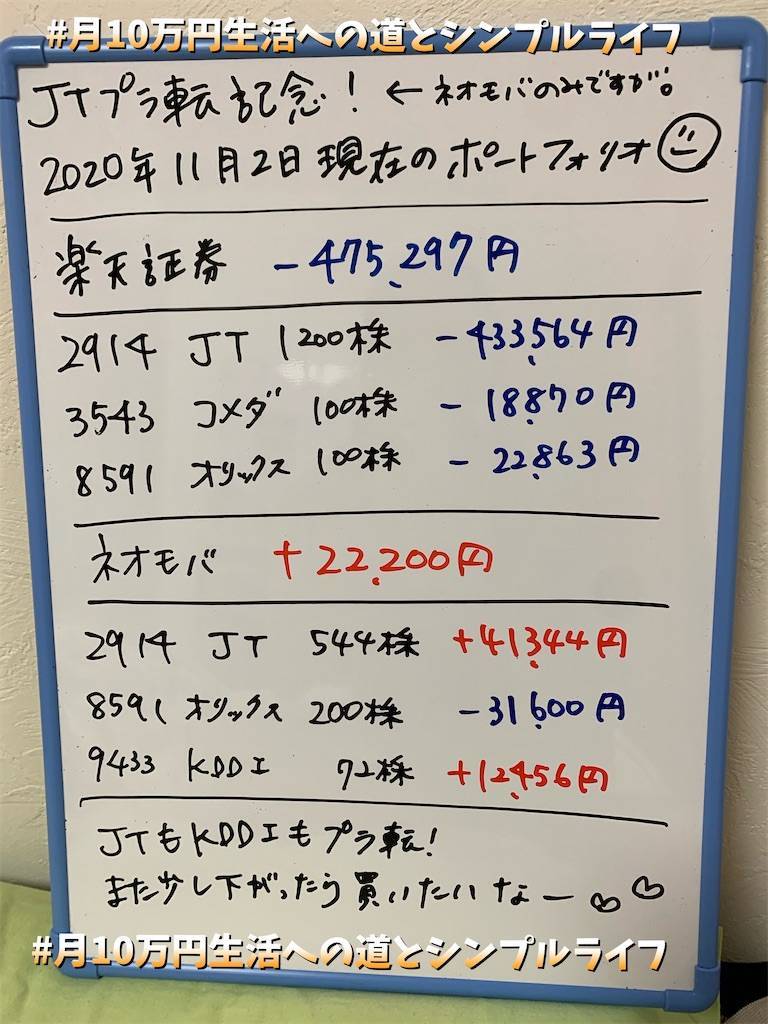 #月10万円生活への道とシンプルライフ
JTプラ転記念！ ← ネオモバのみですが。
2020年11月2日現在のポートフォリオ
楽天証券 -475,297円
2914 JT 1200株 -433,564円
3543 コメダ 100株 -18,870円
8591 オリックス 100株 -22,863円
ネオモバ +22,200円
2914 JT 544株 +41,344円
8591 オリックス 200株 -31,600円
9433 KDDI 72株 +12,456円
JTもKDDIもプラ転！
また少し下がったら買いたいなー
#月10万円生活への道とシンプルライフ